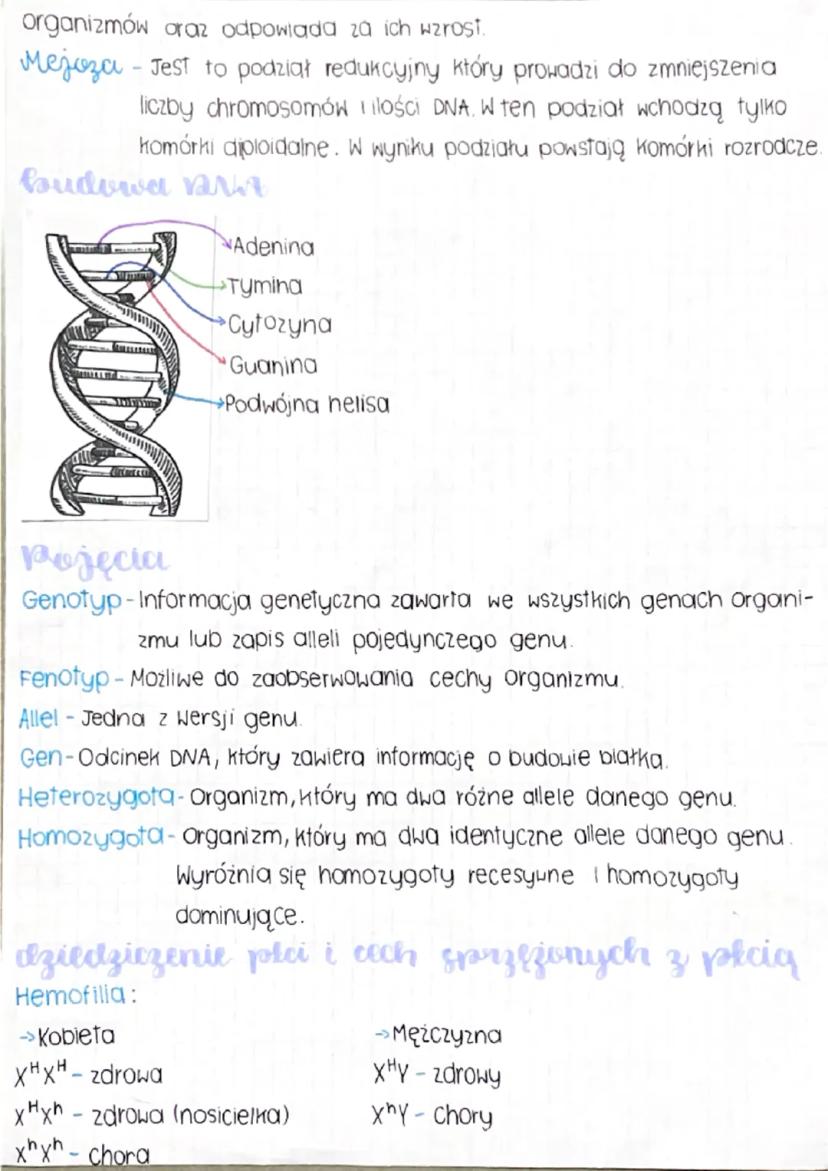 organizmów oraz odpowiada za ich wzrost.
Mejoza - Jest to podział redukcyjny który prowadzi do zmniejszenia
liczby chromosomów i ilości DNA. W ten podział wchodzą tylko
komórki diploidalne. W wyniku podziału powstają komórki rozrodcze.
budowa DNA
Adenina
Tymina
Cytozyna
Guanina
Podwójna helisa
Pojęcia
Genotyp - Informacja genetyczna zawarta we wszystkich genach organi-
zmu lub zapis alleli pojedynczego genu.
Fenotyp - Możliwe do zaobserwowania cechy organizmu.
Allel - Jedna z wersji genu.
Gen - Odcinek DNA, który zawiera informację o budowie białka.
Heterozygota - Organizm, który ma dwa różne allele danego genu.
Homozygota - Organizm, który ma dwa identyczne allele danego genu.
Wyróżnia się homozygoty recesywne i homozygoty
dominujące.
dziedziczenie płci i cech sprzężonych z płcią
Hemofilia:
→ Kobieta → Mężczyzna
XᴴXᴴ - zdrowa XᴴY - zdrowy
XᴴXʰ - zdrowa (nosicielka) XʰY - chory
XʰXʰ - chora